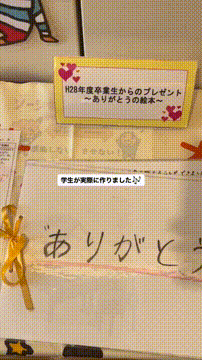 H28年度卒業生からのプレゼント
～ありがとうの絵本～
学生が実際に作りました🎶
ありがとう